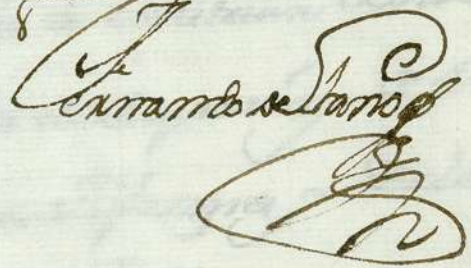 Fernando de Llano